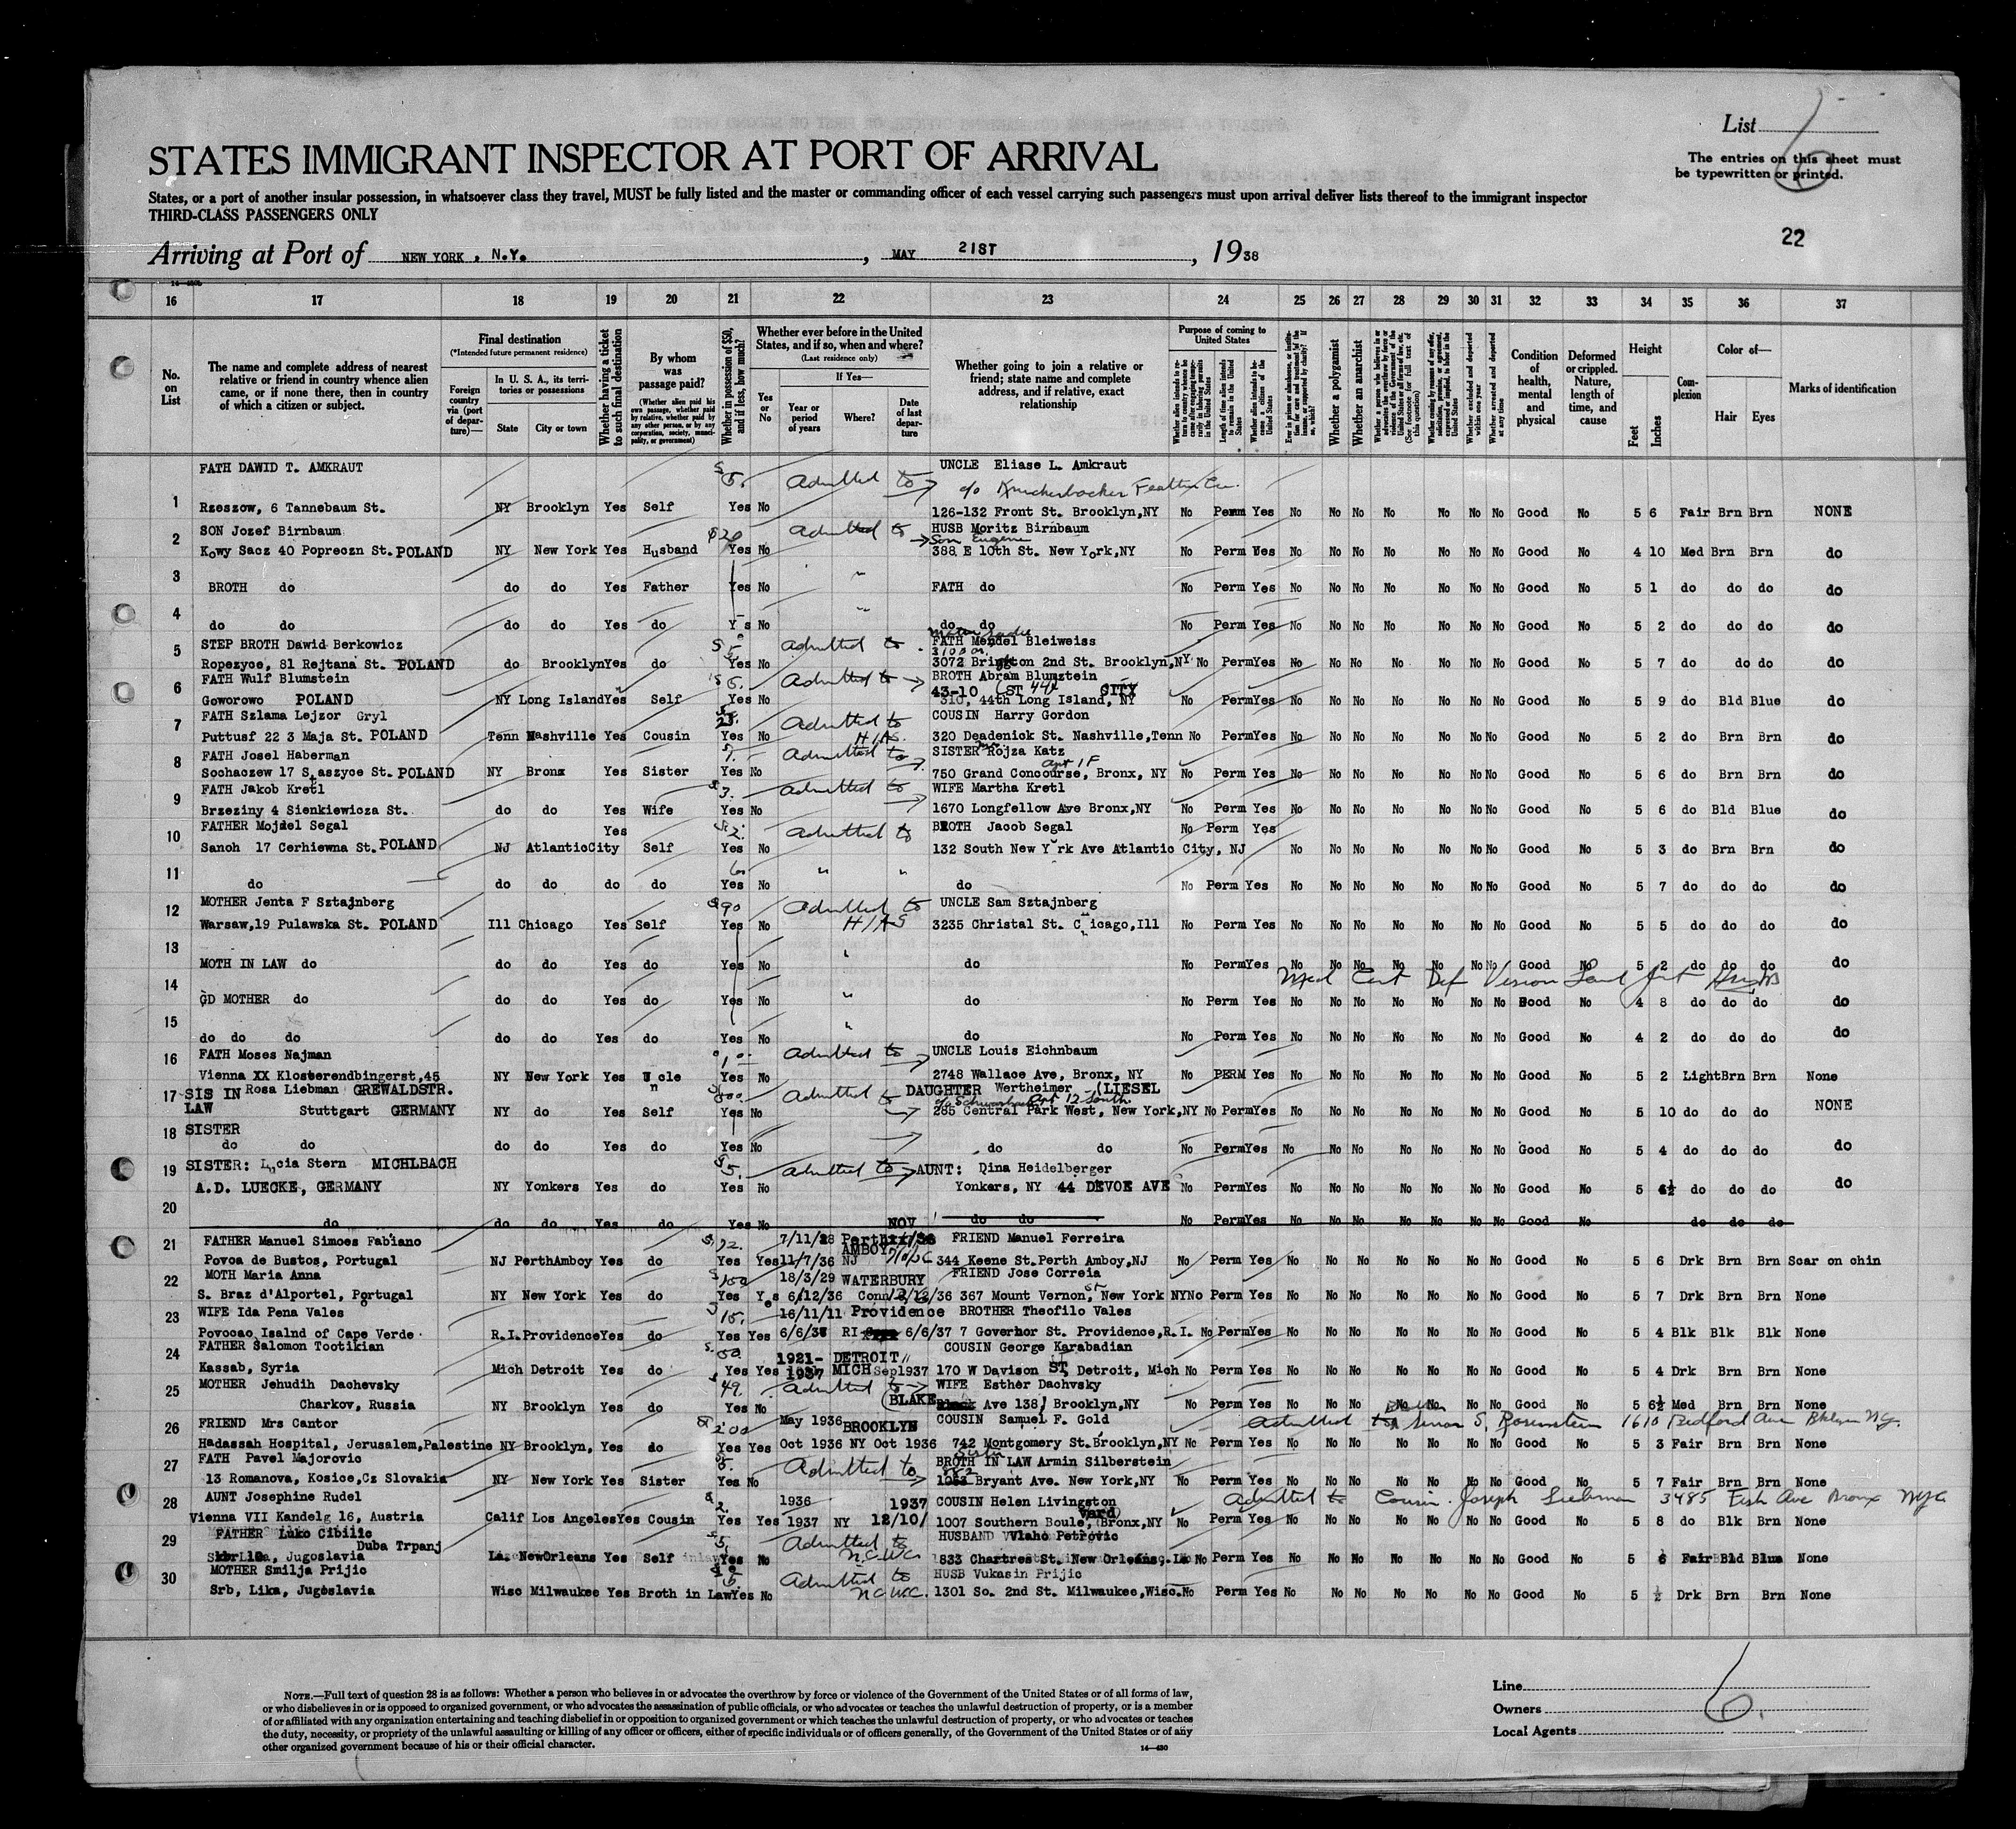 List 6
STATES IMMIGRANT INSPECTOR AT PORT OF ARRIVAL
The entries on this sheet must
be typewritten or printed.
States, or a port of another insular possession, in whatsoever class they travel, MUST be fully listed and the master or commanding officer of each vessel carrying such passengers must upon arrival deliver lists thereof to the immigrant inspector
THIRD-CLASS PASSENGERS ONLY
22
Arriving at Port of NEW YORK, N.Y., MAY 21ST, 1938
16 17 18 19 20 21 22 23 24 25 26 27 28 29 30 31 32 33 34 35 36 37
No. on List
The name and complete address of nearest relative or friend in country whence alien came, or if none there, then in country of which a citizen or subject.
Final destination
(*Intended future permanent residence)
Foreign country via (port of departure)—
In U. S. A., its territories or possessions
State
City or town
Whether having a ticket to such final destination
By whom was passage paid?
(Whether alien paid his own passage, whether paid by relative, whether paid by any other person, or by any corporation, society, municipality, or government)
Whether in possession of $50, and if less, how much?
Whether ever before in the United States, and if so, when and where?
(Last residence only)
Yes or No
If Yes—
Year or period of years
Where?
Date of last departure
Whether going to join a relative or friend; state name and complete address, and if relative, exact relationship
Purpose of coming to United States
Whether a polygamist
Whether an anarchist
Condition of health, mental and physical
Deformed or crippled. Nature, length of time, and cause
Height
Feet
Inches
Complexion
Color of—
Hair
Eyes
Marks of identification
FATH DAWID T. AMKRAUT 5. Admitted to UNCLE Eliase L. Amkraut
c/o Knickerbocker Feather Co.
1 Rzeszow, 6 Tannebaum St. NY Brooklyn Yes Self Yes No 126-132 Front St. Brooklyn,NY No Perm Yes No No No No No No No Good No 5 6 Fair Brn Brn NONE
SON Jozef Birnbaum $20 Admitted to HUSB Moritz Birnbaum
Son Eugene
2 Kowy Sacz 40 Popreczn St. POLAND NY New York Yes Husband Yes No 388 E 10th St. New York,NY No Perm Yes No No No No No No No Good No 4 10 Med Brn Brn do
3 BROTH do do do Yes Father Yes No " FATH do No Perm Yes No No No No No No No Good No 5 1 do do do do
4 do do do do Yes do Y s No " do do No Perm Yes No No No No No No No Good No 5 2 do do do do
STEP BROTH Dawid Berkowicz 5 Admitted to FATH Mendel Bleiweiss
5 Ropczyce, 81 Rejtana St. POLAND do Brooklyn Yes do Yes No 3072 Brighton 2nd St. Brooklyn,NY No Perm Yes No No No No No No No Good No 5 7 do do do do
FATH Wulf Blumstein 5. Admitted to BROTH Abram Blumztein
43-10 (ST 44) CITY
6 Goworowo POLAND NY Long Island Yes Self Yes No 310, 44th Long Island, NY No Perm Yes No No No No No No No Good No 5 9 do Bld Blue do
FATH Szlama Lejzor Gryl 25. Admitted to COUSIN Harry Gordon
HIAS.
7 Puttusf 22 3 Maja St. POLAND Tenn Nashville Yes Cousin Yes No 320 Deadenick St. Nashville,Tenn No Perm Yes No No No No No No No Good No 5 2 do Brn Brn do
FATH Josel Haberman 7. Admitted to SISTER Rojza Katz
apt 1F
8 Sochaczew 17 Staszyce St. POLAND NY Bronx Yes Sister Yes No 750 Grand Concourse, Bronx, NY No Perm Yes No No No No No No No Good No 5 6 do Brn Brn do
FATH Jakob Kretl 3. Admitted to WIFE Martha Kretl
9 Brzeziny 4 Sienkiewicza St. do do Yes Wife Yes No 1670 Longfellow Ave Bronx,NY No Perm Yes No No No No No No No Good No 5 6 do Bld Blue do
FATHER Mojdel Segal Yes 2. Admitted to BROTH Jacob Segal No Perm Yes
10 Sanoh 17 Cerhiewna St. POLAND NJ AtlanticCity Self Yes No 132 South New York Ave Atlantic City, NJ No No No No No No No Good No 5 3 do Brn Brn do
11 do do do do do Yes No " " do No Perm Yes No No No No No No No Good No 5 7 do do do do
MOTHER Jenta F Sztajnberg $90 Admitted to UNCLE Sam Sztajnberg
HIAS
12 Warsaw,19 Pulawska St. POLAND Ill Chicago Yes Self Yes No 3235 Christal St. Chicago,Ill No Perm Yes No No No No No No No Good No 5 5 do do do do
13 MOTH IN LAW do do do Yes do Yes No " do No Perm Yes No No No No No No No Good No 5 2 do do do do
Med Cert Def Vision
14 GD MOTHER do do do Yes do Yes No " do No Perm Yes No No No No No No No Good No 4 8 do do do do
15 do do do do do Yes do Yes No " do No Perm Yes No No No No No No No Good No 4 2 do do do do
FATH Moses Najman 1 Admitted to UNCLE Louis Eichnbaum
16 Vienna XX Klosterendbingerst,45 NY New York Yes Uncle Yes No 2748 Wallace Ave, Bronx, NY No PERM Yes No No No No No No No Good No 5 2 Light Brn Brn None
17 SIS IN LAW Rosa Liebman GREWALDSTR. Admitted to DAUGHTER Wertheimer (LIESEL
Apt 12 South.
Stuttgart GERMANY NY do Yes Self Yes No 285 Central Park West, New York,NY No Perm Yes No No No No No No No Good No 5 10 do do do NONE
18 SISTER
do do do do Yes do Yes No do do No Perm Yes No No No No No No No Good No 5 4 do do do do
19 SISTER: Lucia Stern MICHLBACH 5. Admitted to AUNT: Dina Heidelberger
A.D. LUECKE, GERMANY NY Yonkers Yes do Yes No Yonkers, NY 44 DEVOE AVE No Perm Yes No No No No No No No Good No 5 6½ do do do do
20 do do do Yes do Yes No do do No Perm Yes No No No No No No No Good No do do do
21 FATHER Manuel Simoes Fabiano 92. 7/11/28 Perth AMBOY NOV FRIEND Manuel Ferreira
Povoa de Bustos, Portugal NJ PerthAmboy Yes do Yes Yes 11/7/36 NJ 344 Keene St.Perth Amboy,NJ No Perm Yes No No No No No No No Good No 5 6 Drk Brn Brn Scar on chin
22 MOTH Maria Anna 100 18/3/29 WATERBURY FRIEND Jose Correia
S. Braz d'Alportel, Portugal NY New York Yes do Yes Yes 6/12/36 Conn 12/6/36 367 Mount Vernon, ST New York NY No Perm Yes No No No No No No No Good No 5 7 Drk Brn Brn None
23 WIFE Ida Pena Vales 15. 16/11/11 Providence BROTHER Theofilo Vales
Povocao Isalnd of Cape Verde R.I. Providence Yes do Yes Yes 6/6/37 RI 6/6/37 7 Governor St. Providence,R.I. No Perm Yes No No No No No No No Good No 5 4 Blk Blk Blk None
24 FATHER Salomon Tootikian 50. 1921- DETROIT COUSIN George Karabadian
Kassab, Syria Mich Detroit Yes do Yes Yes 1937 MICH Sep1937 170 W Davison ST, Detroit, Mich No Perm Yes No No No No No No No Good No 5 4 Drk Brn Brn None
25 MOTHER Jehudih Dachevsky 49. Admitted to WIFE Esther Dachvsky
Charkov, Russia NY Brooklyn Yes do Yes No (BLAKE Black Ave 138) Brooklyn,NY No Perm Yes No No No No No No No Good No 5 6½ Med Brn Brn None
26 FRIEND Mrs Cantor 200 May 1936 BROOKLYN COUSIN Samuel F. Gold Admitted to S. Rosenstein 1610 Bedford Ave Bklyn N.Y.
Hadassah Hospital, Jerusalem,Palestine NY Brooklyn, Yes do Yes Yes Oct 1936 NY Oct 1936 742 Montgomery St.Brooklyn,NY No Perm Yes No No No No No No No Good No 5 3 Fair Brn Brn None
27 FATH Pavel Majorovic 5. Admitted to Sister BROTH IN LAW Armin Silberstein
13 Romanova, Kosice,Cz Slovakia NY New York Yes Sister Yes No Bryant Ave. New York,NY No Perm Yes No No No No No No No Good No 5 7 Fair Brn Brn None
28 AUNT Josephine Rudel 2. 1936 1937 COUSIN Helen Livingston Admitted to Cousin Joseph Liebman 3485 Fish Ave Bronx NYC
Vienna VII Kandelg 16, Austria Calif Los Angeles Yes Cousin Yes Yes 1937 NY 12/10/ 1007 Southern Boule,vard) Bronx,NY No Perm Yes No No No No No No No Good No 5 8 do Blk Brn None
29 FATHER Luko Cibilic Duba Trpanj 5. Admitted to HUSBAND Vlaho Petrovic
N.C.W.C.
Jugoslavia La. NewOrleans Yes Self Yes No 833 Chartres St. New Orleans, La No Perm Yes No No No No No No No Good No 5 6 Fair Bld Blue None
30 MOTHER Smilja Prijic 5 Admitted to HUSB Vukasin Prijic
N.C.W.C.
Srb, Lika, Jugoslavia Wisc Milwaukee Yes Broth in Law Yes No 1301 So. 2nd St. Milwaukee,Wisc. No Perm Yes No No No No No No No Good No 5 ½ Drk Brn Brn None
NOTE.—Full text of question 28 is as follows: Whether a person who believes in or advocates the overthrow by force or violence of the Government of the United States or of all forms of law,
or who disbelieves in or is opposed to organized government, or who advocates the assassination of public officials, or who advocates or teaches the unlawful destruction of property, or is a member
of or affiliated with any organization entertaining and teaching disbelief in or opposition to organized government or which teaches the unlawful destruction of property, or who advocates or teaches
the duty, necessity, or propriety of the unlawful assaulting or killing of any officer or officers, either of specific individuals or of officers generally, of the Government of the United States or of any
other organized government because of his or their official character.
14—430
Line
Owners 6.
Local Agents